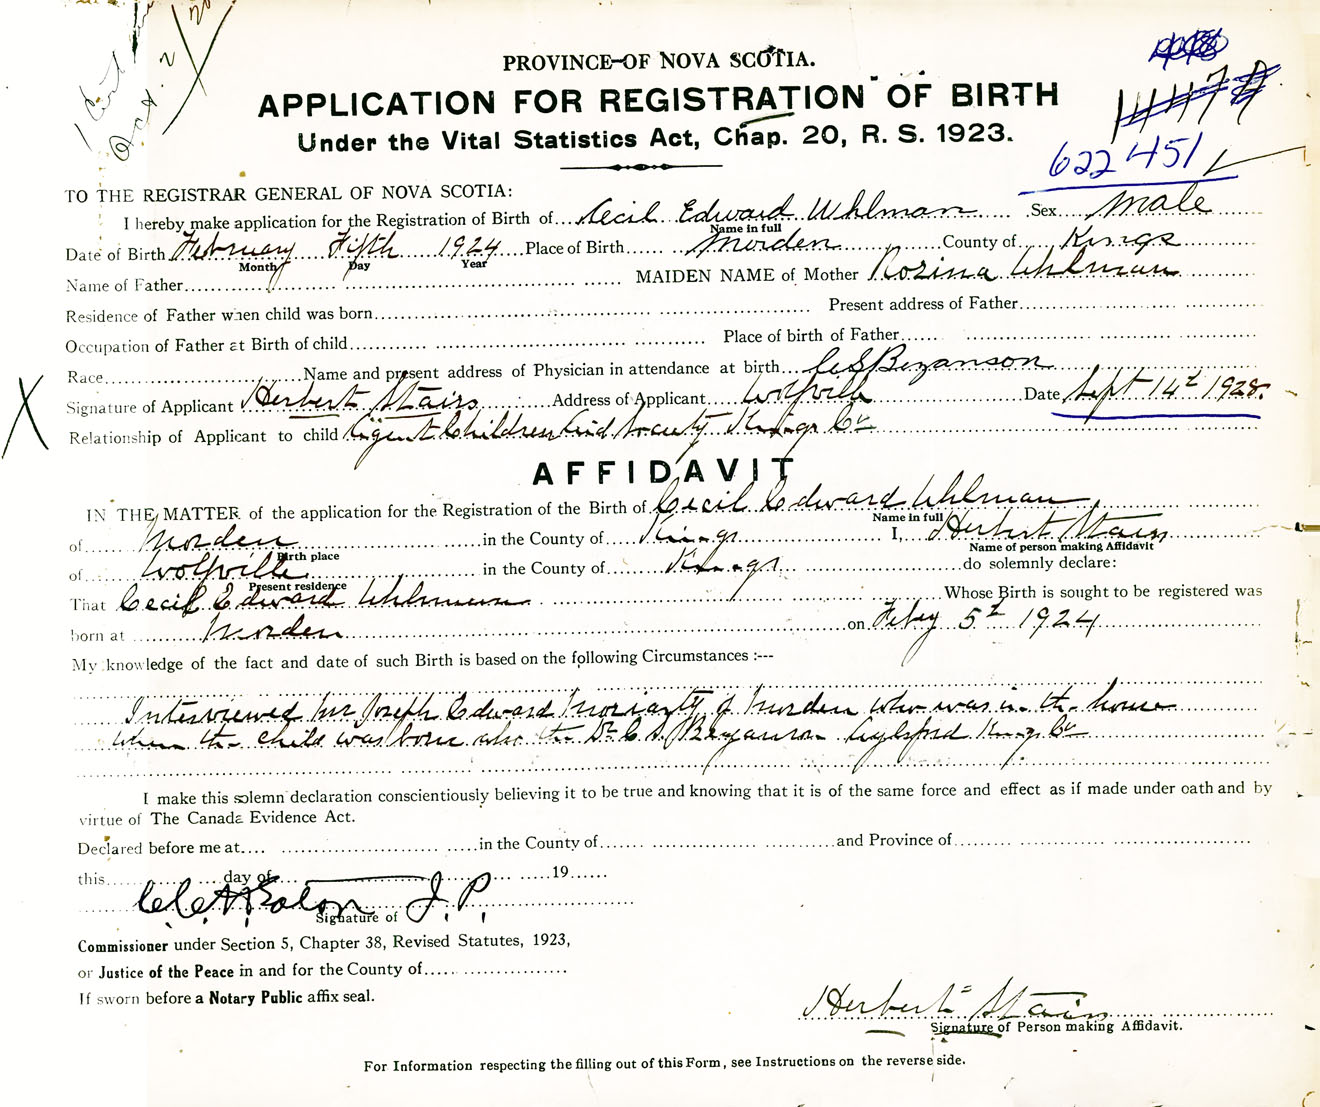 PROVINCE OF NOVA SCOTIA.
APPLICATION FOR REGISTRATION OF BIRTH
Under the Vital Statistics Act, Chap. 20, R. S. 1923.
622451
TO THE REGISTRAR GENERAL OF NOVA SCOTIA:
I hereby make application for the Registration of Birth of Cecil Edward Uhlman Sex Male
Name in full
Date of Birth February Fifth 1924 Place of Birth Morden County of Kings
Month Day Year
Name of Father MAIDEN NAME of Mother Rozina Uhlman
Residence of Father when child was born Present address of Father
Occupation of Father at Birth of child Place of birth of Father
Race Name and present address of Physician in attendance at birth C S Bezanson
Signature of Applicant Herbert Stairs Address of Applicant Wolfville Date Sept 14th 1928.
Relationship of Applicant to child Agent Children Aid Society Kings Co
AFFIDAVIT
IN THE MATTER of the application for the Registration of the Birth of Cecil Edward Uhlman
Name in full
of Morden in the County of Kings I, Herbert Stairs
Birth place Name of person making Affidavit
of Wolfville in the County of Kings do solemnly declare:
Present residence
That Cecil Edward Uhlman Whose Birth is sought to be registered was
born at Morden on Feby 5th 1924
My knowledge of the fact and date of such Birth is based on the following Circumstances :---
Interviewed Mr Joseph Edward Moriarty of Morden who was in the house
when the child was born also the Dr C. S. Bezanson Aylsford Kings Co
I make this solemn declaration conscientiously believing it to be true and knowing that it is of the same force and effect as if made under oath and by
virtue of The Canada Evidence Act.
Declared before me at in the County of and Province of
this day of 19
J. P.
Signature of
Commissioner under Section 5, Chapter 38, Revised Statutes, 1923,
or Justice of the Peace in and for the County of
If sworn before a Notary Public affix seal.
Herbert Stairs
Signature of Person making Affidavit.
For Information respecting the filling out of this Form, see Instructions on the reverse side.